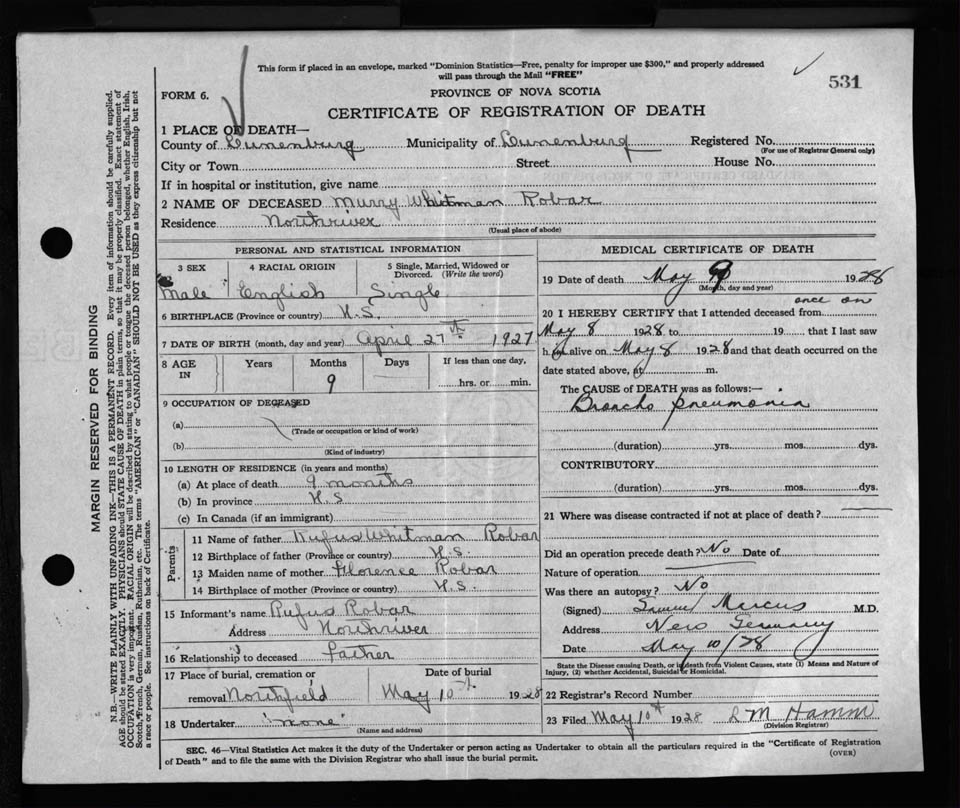 This form if placed in an envelope, marked "Dominion Statistics—Free, penalty for improper use $300," and properly addressed
will pass through the Mail "FREE"
531
PROVINCE OF NOVA SCOTIA
FORM 6.
CERTIFICATE OF REGISTRATION OF DEATH
1 PLACE OF DEATH—
County of Lunenburg Municipality of Lunenburg Registered No.
(For use of Registrar General only)
City or Town Street House No.
If in hospital or institution, give name
2 NAME OF DECEASED Murry Whitman Robar
Residence Northriver
(Usual place of abode)
PERSONAL AND STATISTICAL INFORMATION
3 SEX 4 RACIAL ORIGIN 5 Single, Married, Widowed or
Divorced. (Write the word)
Male English Single
6 BIRTHPLACE (Province or country) N.S.
7 DATE OF BIRTH (month, day and year) April 27th 1927
8 AGE IN Years Months Days If less than one day,
9 hrs. or min.
9 OCCUPATION OF DECEASED
(a)
(Trade or occupation or kind of work)
(b)
(Kind of industry)
10 LENGTH OF RESIDENCE (in years and months)
(a) At place of death 9 months
(b) In province N.S
(c) In Canada (if an immigrant)
Parents
11 Name of father Rufus Whitman Robar
12 Birthplace of father (Province or country) N.S.
13 Maiden name of mother Florence Robar
14 Birthplace of mother (Province or country) N.S.
15 Informant's name Rufus Robar
Address Northriver
16 Relationship to deceased Father
17 Place of burial, cremation or Date of burial
removal Northfield May 10th 1928
18 Undertaker "none"
(Name and address)
MEDICAL CERTIFICATE OF DEATH
19 Date of death May 9 1928
(Month, day and year)
once on
20 I HEREBY CERTIFY that I attended deceased from
May 8 1928 to 19 that I last saw
him alive on May 8 1928 and that death occurred on the
date stated above, at m.
The CAUSE OF DEATH was as follows:—
Broncho pneumonia
(duration) yrs. mos. dys.
CONTRIBUTORY
(duration) yrs. mos. dys.
21 Where was disease contracted if not at place of death?
Did an operation precede death? No Date of
Nature of operation
Was there an autopsy? No
(Signed) Samuel Marcus M.D.
Address New Germany
Date May 10/28
State the Disease causing Death, or in death from Violent Causes, state (1) Means and Nature of
Injury, (2) whether Accidental, Suicidal or Homicidal.
22 Registrar's Record Number
23 Filed May 10th 1928 L M Hamm
(Division Registrar)
SEC. 46—Vital Statistics Act makes it the duty of the Undertaker or person acting as Undertaker to obtain all the particulars required in the "Certificate of Registration
of Death" and to file the same with the Division Registrar who shall issue the burial permit.
(OVER)
MARGIN RESERVED FOR BINDING
N.B.—WRITE PLAINLY WITH UNFADING INK—THIS IS A PERMANENT RECORD. Every item of information should be carefully supplied.
AGE should be stated EXACTLY. PHYSICIANS should STATE CAUSE OF DEATH in plain terms, so that it may be properly classified. Exact statement of
OCCUPATION is very important. RACIAL ORIGIN will be described by stating to what people or tongue the deceased person belonged, whether English, Irish,
Scotch, French, German, Russian, Ruthenian, etc. The terms "AMERICAN" or "CANADIAN" SHOULD NOT BE USED as they express citizenship but not
a race or people. See instructions on back of Certificate.